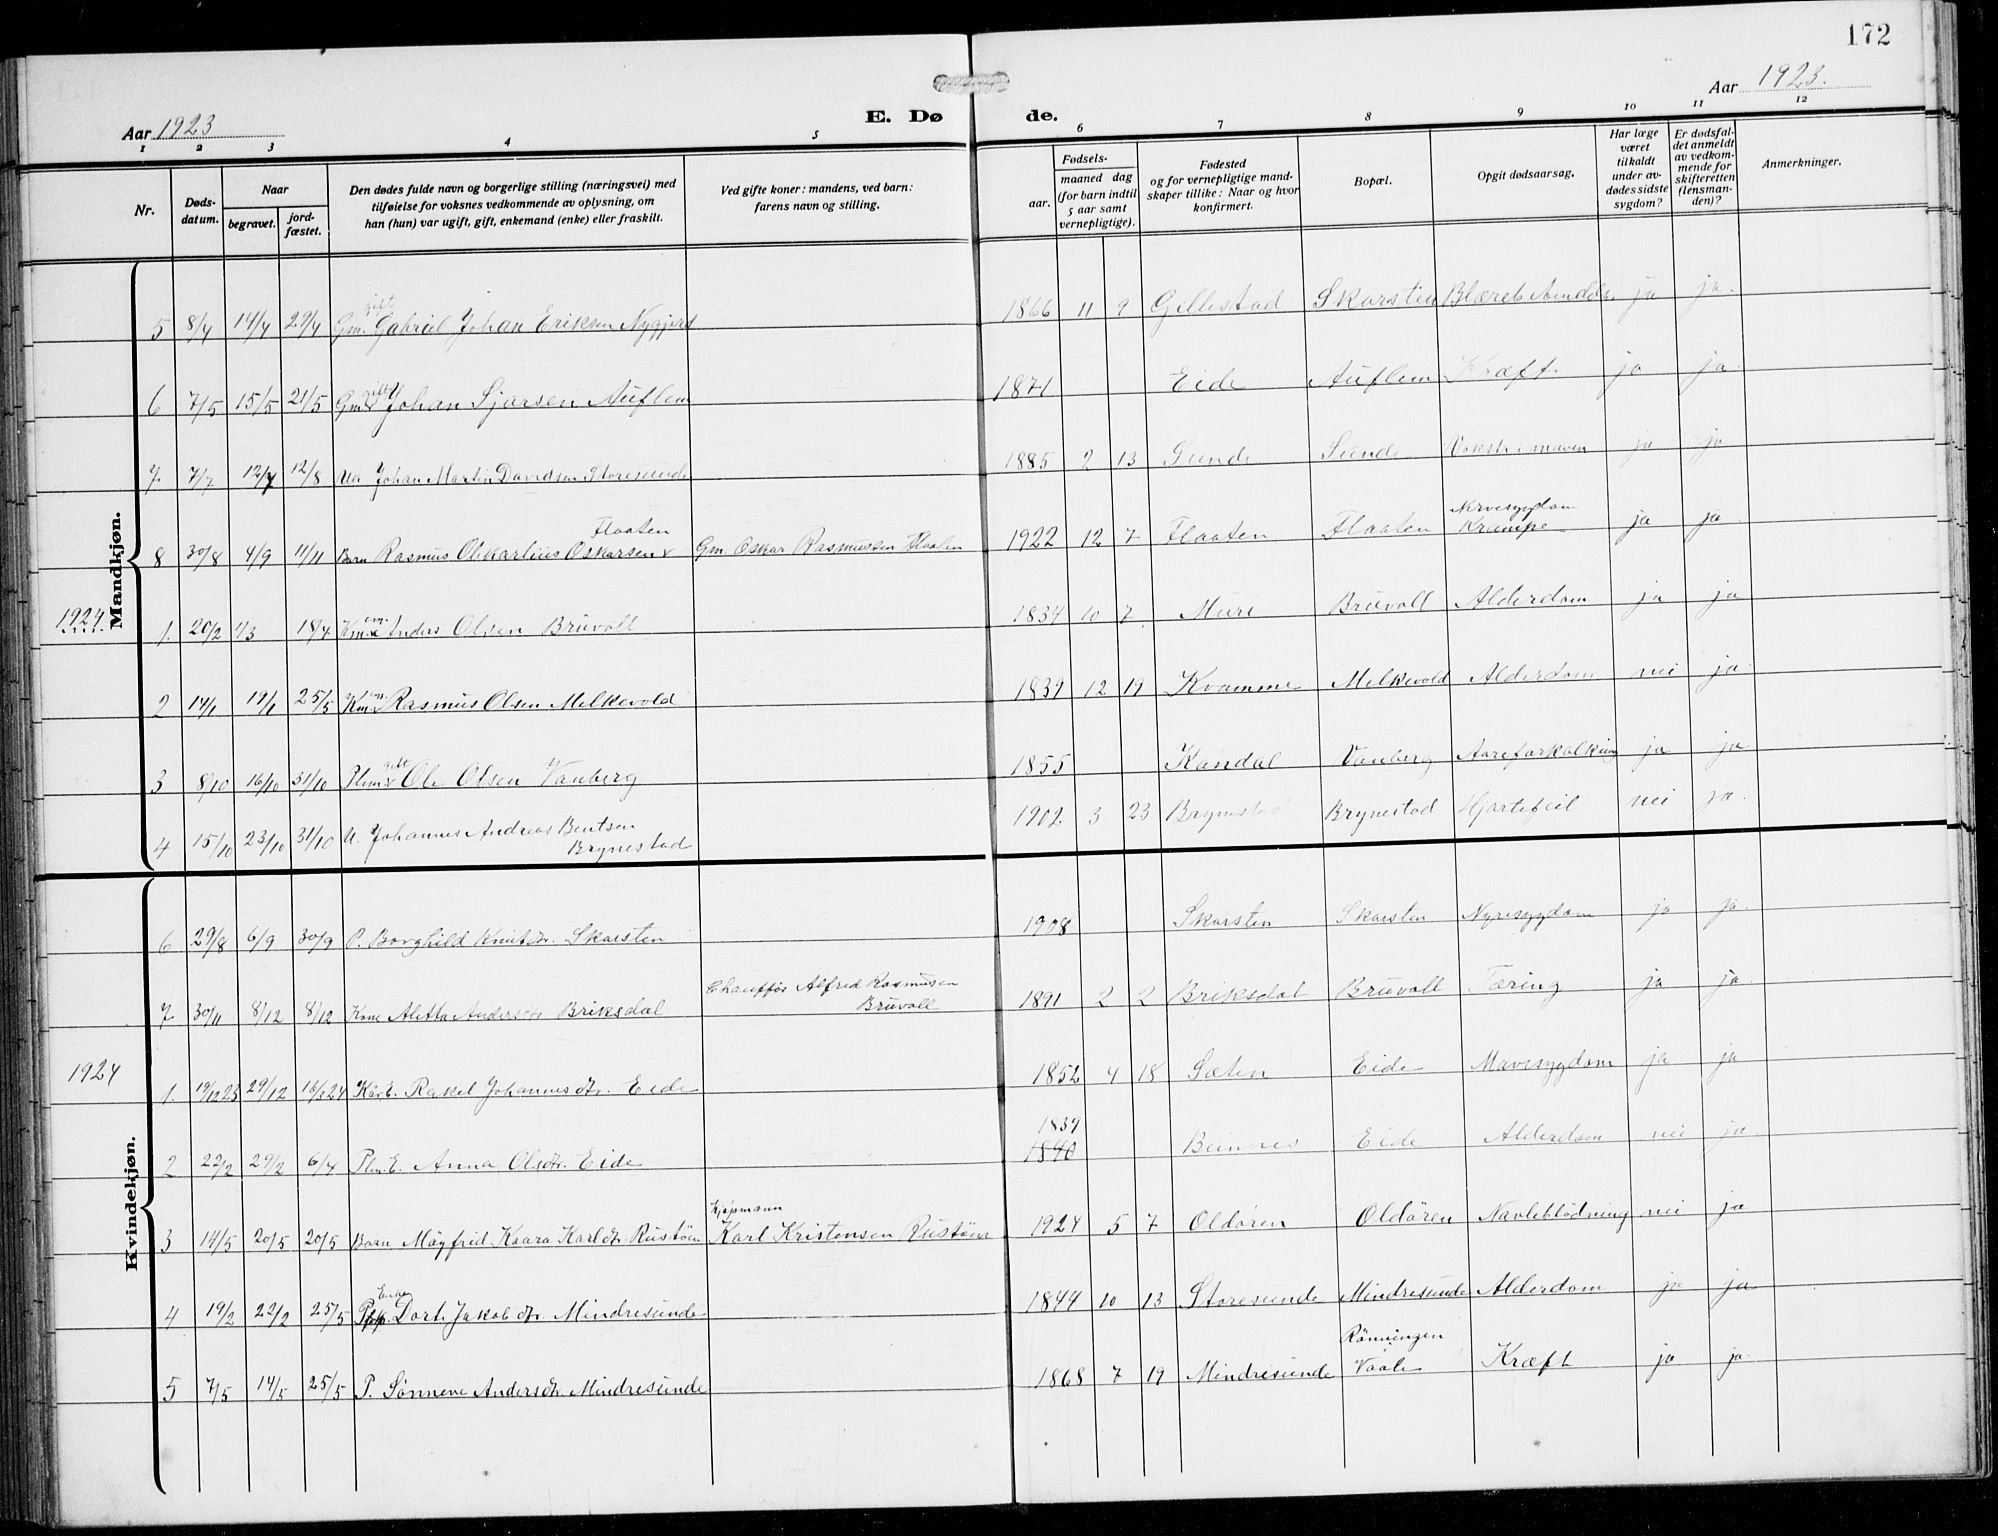 172
Aar 1923
E. Døde.
Aar 1923.
1 2 3 4 5 6 7 8 9 10 11 12
Nr.
Døds-datum.
Naar
begravet.
jord-fæstet.
Den dødes fulde navn og borgerlige stilling (næringsvei) med tilføielse for voksnes vedkommende av oplysning, om han (hun) var ugift, gift, enkemand (enke) eller fraskilt.
Ved gifte koner: mandens, ved barn: farens navn og stilling.
Fødsels-
aar.
maaned dag
(for barn indtil 5 aar samt vernepligtige).
Fødested og for vernepligtige mand-skaper tillike: Naar og hvor konfirmert.
Bopæl.
Opgit dødsaarsag.
Har læge været tilkaldt under av-dødes sidste sygdom?
Er dødsfal-det anmeldt av vedkom-mende for skifteretten (lensman-den)?
Anmerkninger.
Mandkjøn.
5 8/4 14/4 29/4 Gm. gift Gabriel Johan Eriksen Nygjerd 1866 11 9 Gillestad Skarsten Blæreb ja ja.
6 7/5 15/5 21/5 Gm. gift Johan Sjursen Auflem 1871 Eide Auflem Kræft. ja ja.
7. 7/7 12/7 12/8 Johan Martin Davidsen Storesunde 1885 2 13 Sunde Sunde Vekst i maven ja ja
8 30/8 4/9 11/11 Barn Rasmus Olekarlius Oskarsen Flaaten Gm. Oskar Rasmussen Flaaten 1922 12 7 Flaaten Flaaten Nervesygdom Krampe ja ja.
1924
1. 20/2 1/3 18/4 Km. em. Anders Olsen Bruvoll 1834 10 7. Muri Bruvoll Alderdom ja ja
2 14/1 19/1 25/5 Km. em. Rasmus Olsen Melkevold 1839 12 19 Kvamme Melkevold Alderdom nei ja.
3 8/10 16/10 31/10 Plm. gift Ole Olsen Vanberg 1855 Kandal Vanberg Aareforkalkning ja ja
4 15/10 23/10 31/10 U. Johannes Andreas Bentsen Brynestad 1902 3 23 Brynestad Brynestad Hjertefeil nei ja.
Kvindekjøn.
6 29/8 6/9 30/9 P. Borghild Knutdtr. Skarsten 1908 Skarsten Skarsten Nyresygdom ja ja.
7. 30/11 8/12 8/12 Kone Aletta Andersdtr Briksdal Chauffør Alfred Rasmusen Bruvoll 1891 2 2 Briksdal Bruvoll Tæring ja ja.
1924
1. 19/12 23 29/12 16/2 24 Kår E. Rakel Johannesdtr. Eide 1852 4 18 Sæten Eide Mavesygdom ja ja
2 22/2 29/2 6/4 Plm. E. Anna Olsdtr. Eide 1839 1840 Beinnes Eide Alderdom nei ja
3 14/5 20/5 20/5 Barn Mayfrid Kaara Karldtr. Rustøen Kjøpmann Karl Kristensen Rustøen 1924 5 7 Oldøren Oldøren Navleblødning nei ja
4 19/2 22/2 25/5 Enke Dorte Jakobdtr Mindresunde 1844 10 13 Storesunde Mindresunde Alderdom ja ja
5 7/5 14/5 25/5 P. Sønneve Andersdtr. Mindresunde 1868 7 19 Mindresunde Rønningen Vaale Kræft ja ja.